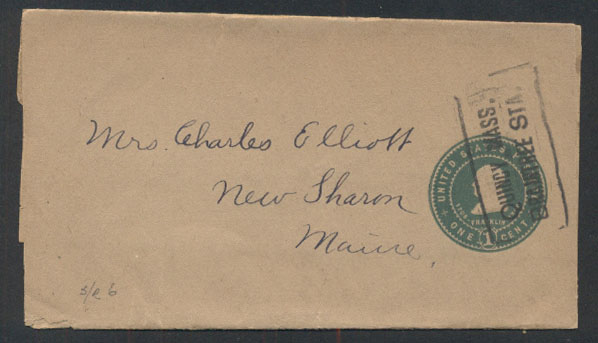 Mrs. Charles Elliott
New Sharon
Maine,
s/e 6
UNITED STATES
FRANKLIN
ONE 1 CENT
STA.
QUINCY MASS.